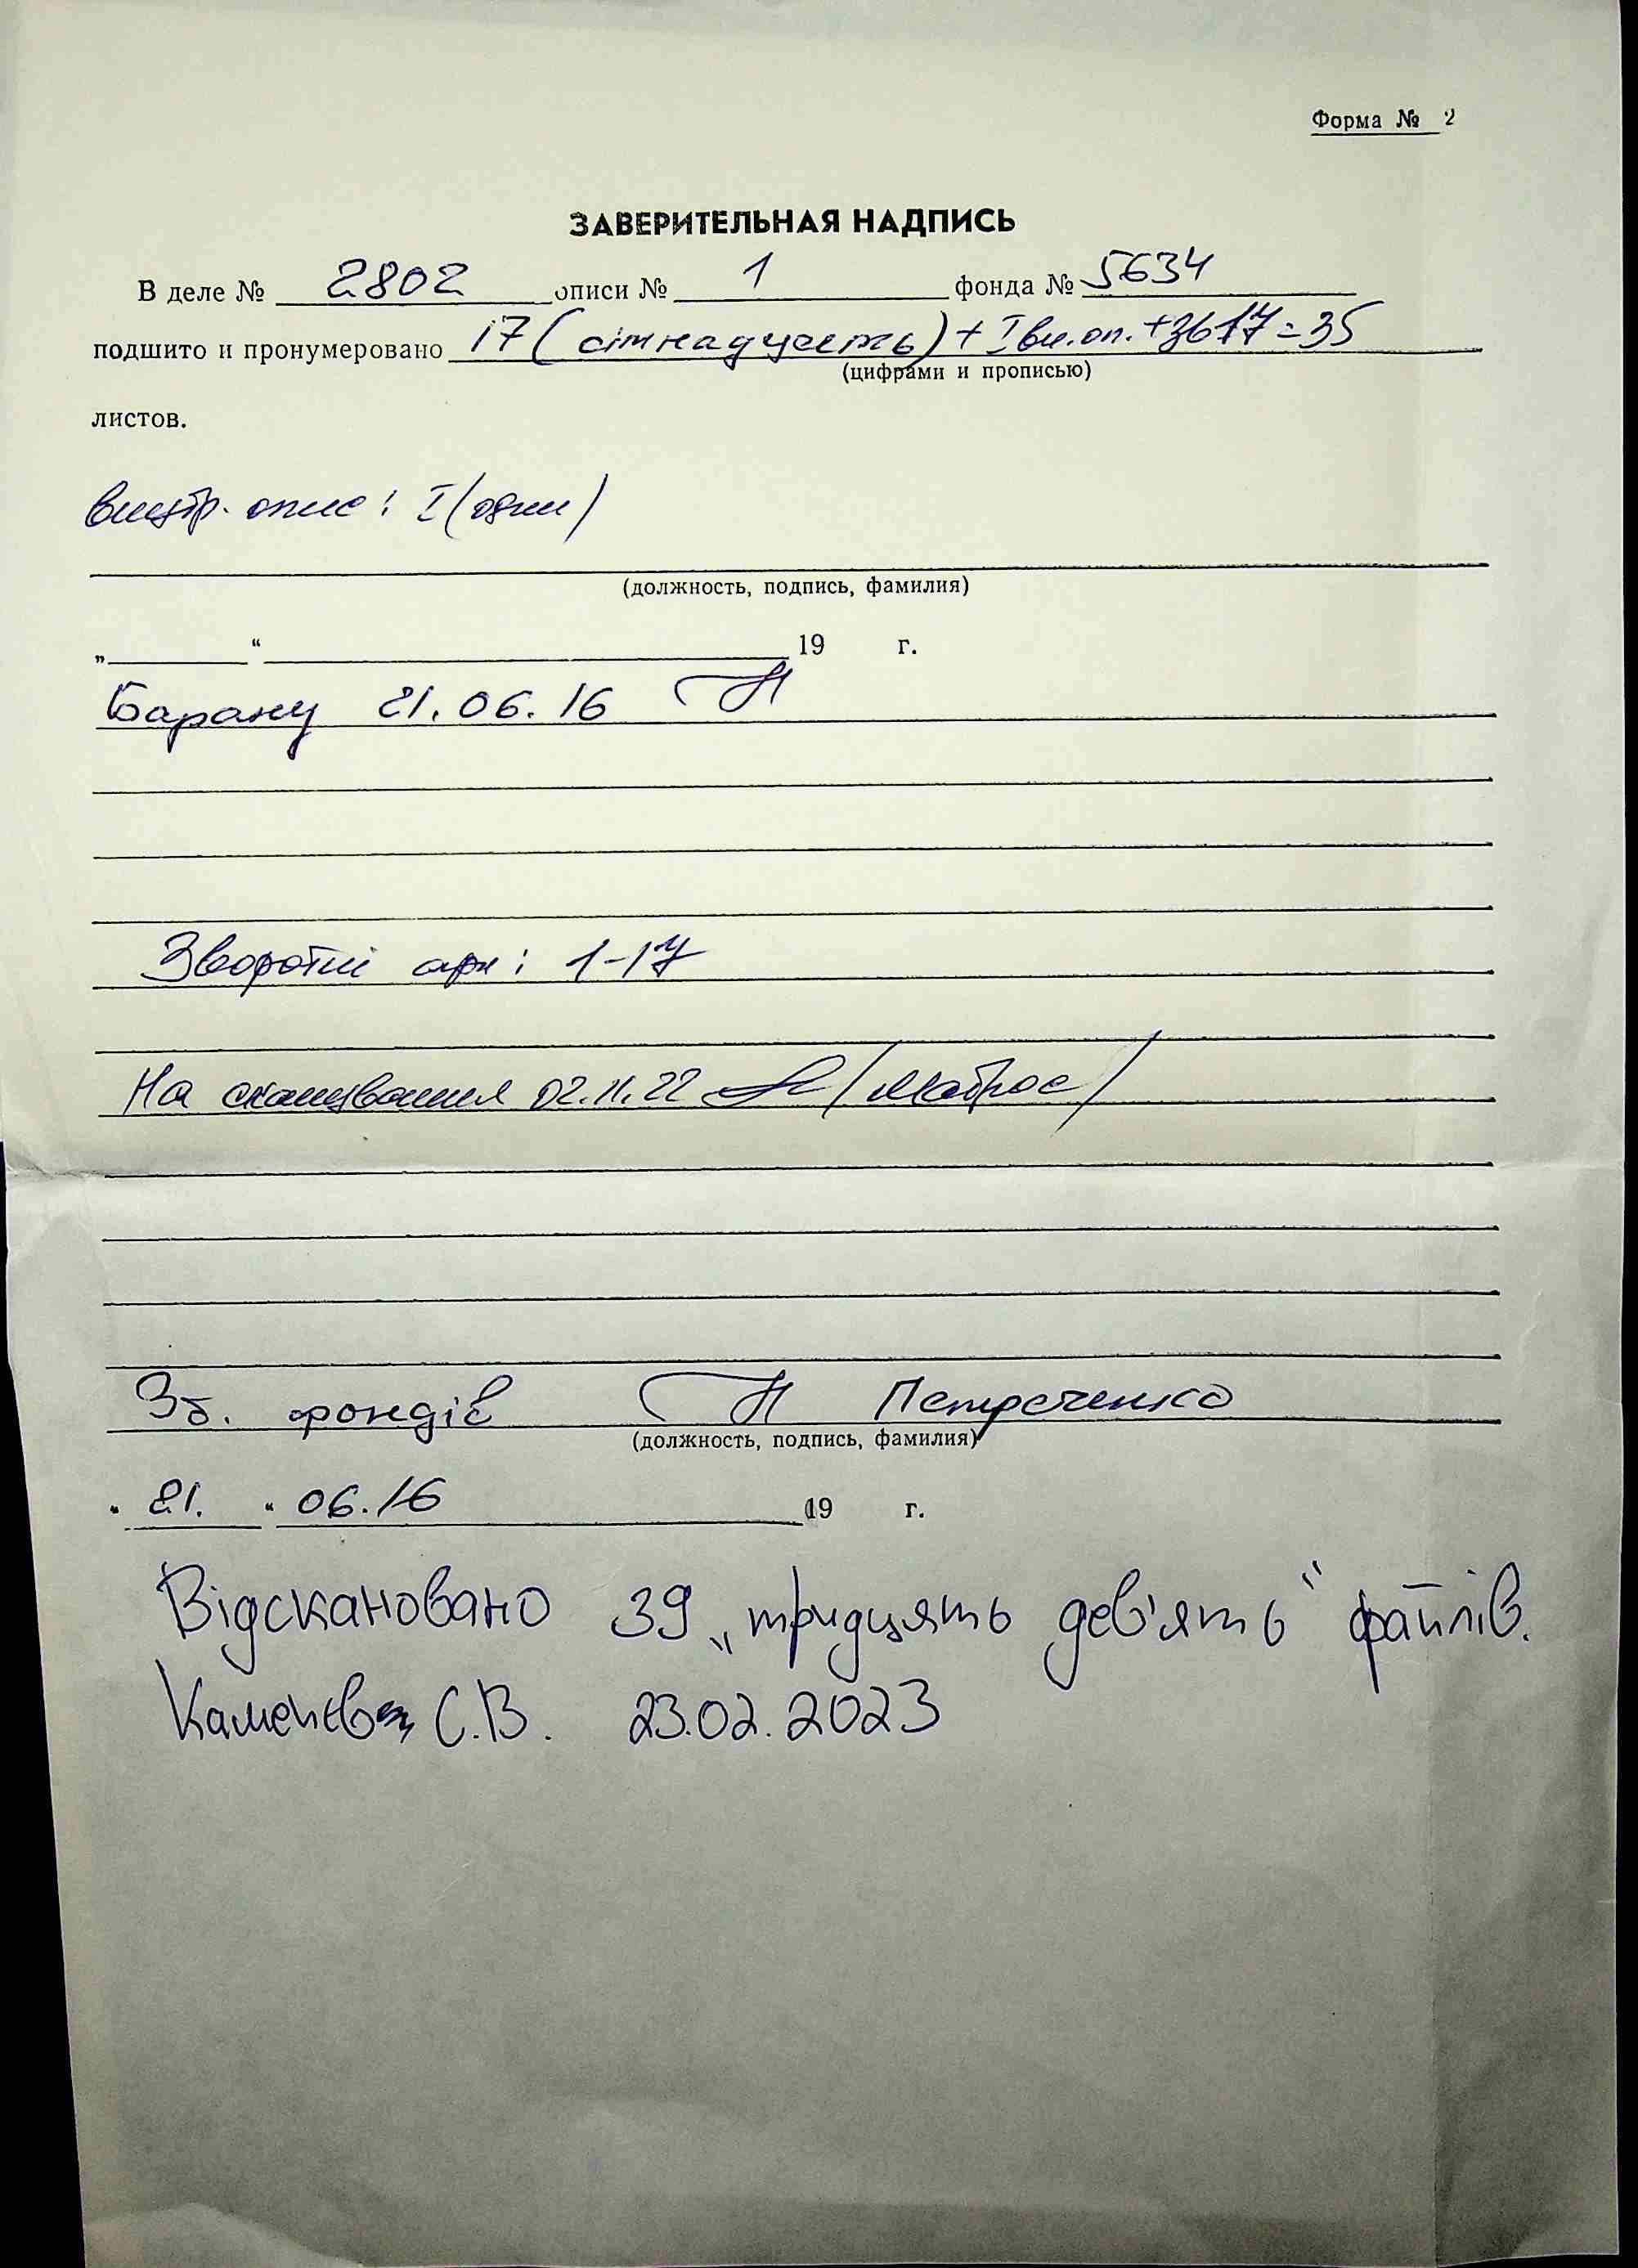 Форма № 2
ЗАВЕРИТЕЛЬНАЯ НАДПИСЬ
В деле № 2802 описи № 1 фонда № 5634
подшито и пронумеровано 17 (сімнадцять) + 1 вн. оп. + зв 17 = 35
(цифрами и прописью)
листов.
внутр. опис: 1 (один)
(должность, подпись, фамилия)
„ “ 19 г.
21.06.16
Зворотні арк: 1-17
На сканування 02.11.22
Зб. фондів Петреченко
(должность, подпись, фамилия)
" 21. " 06.16 19 г.
Відскановано 39 „тридцять дев'ять" файлів.
С.В. 23.02.2023